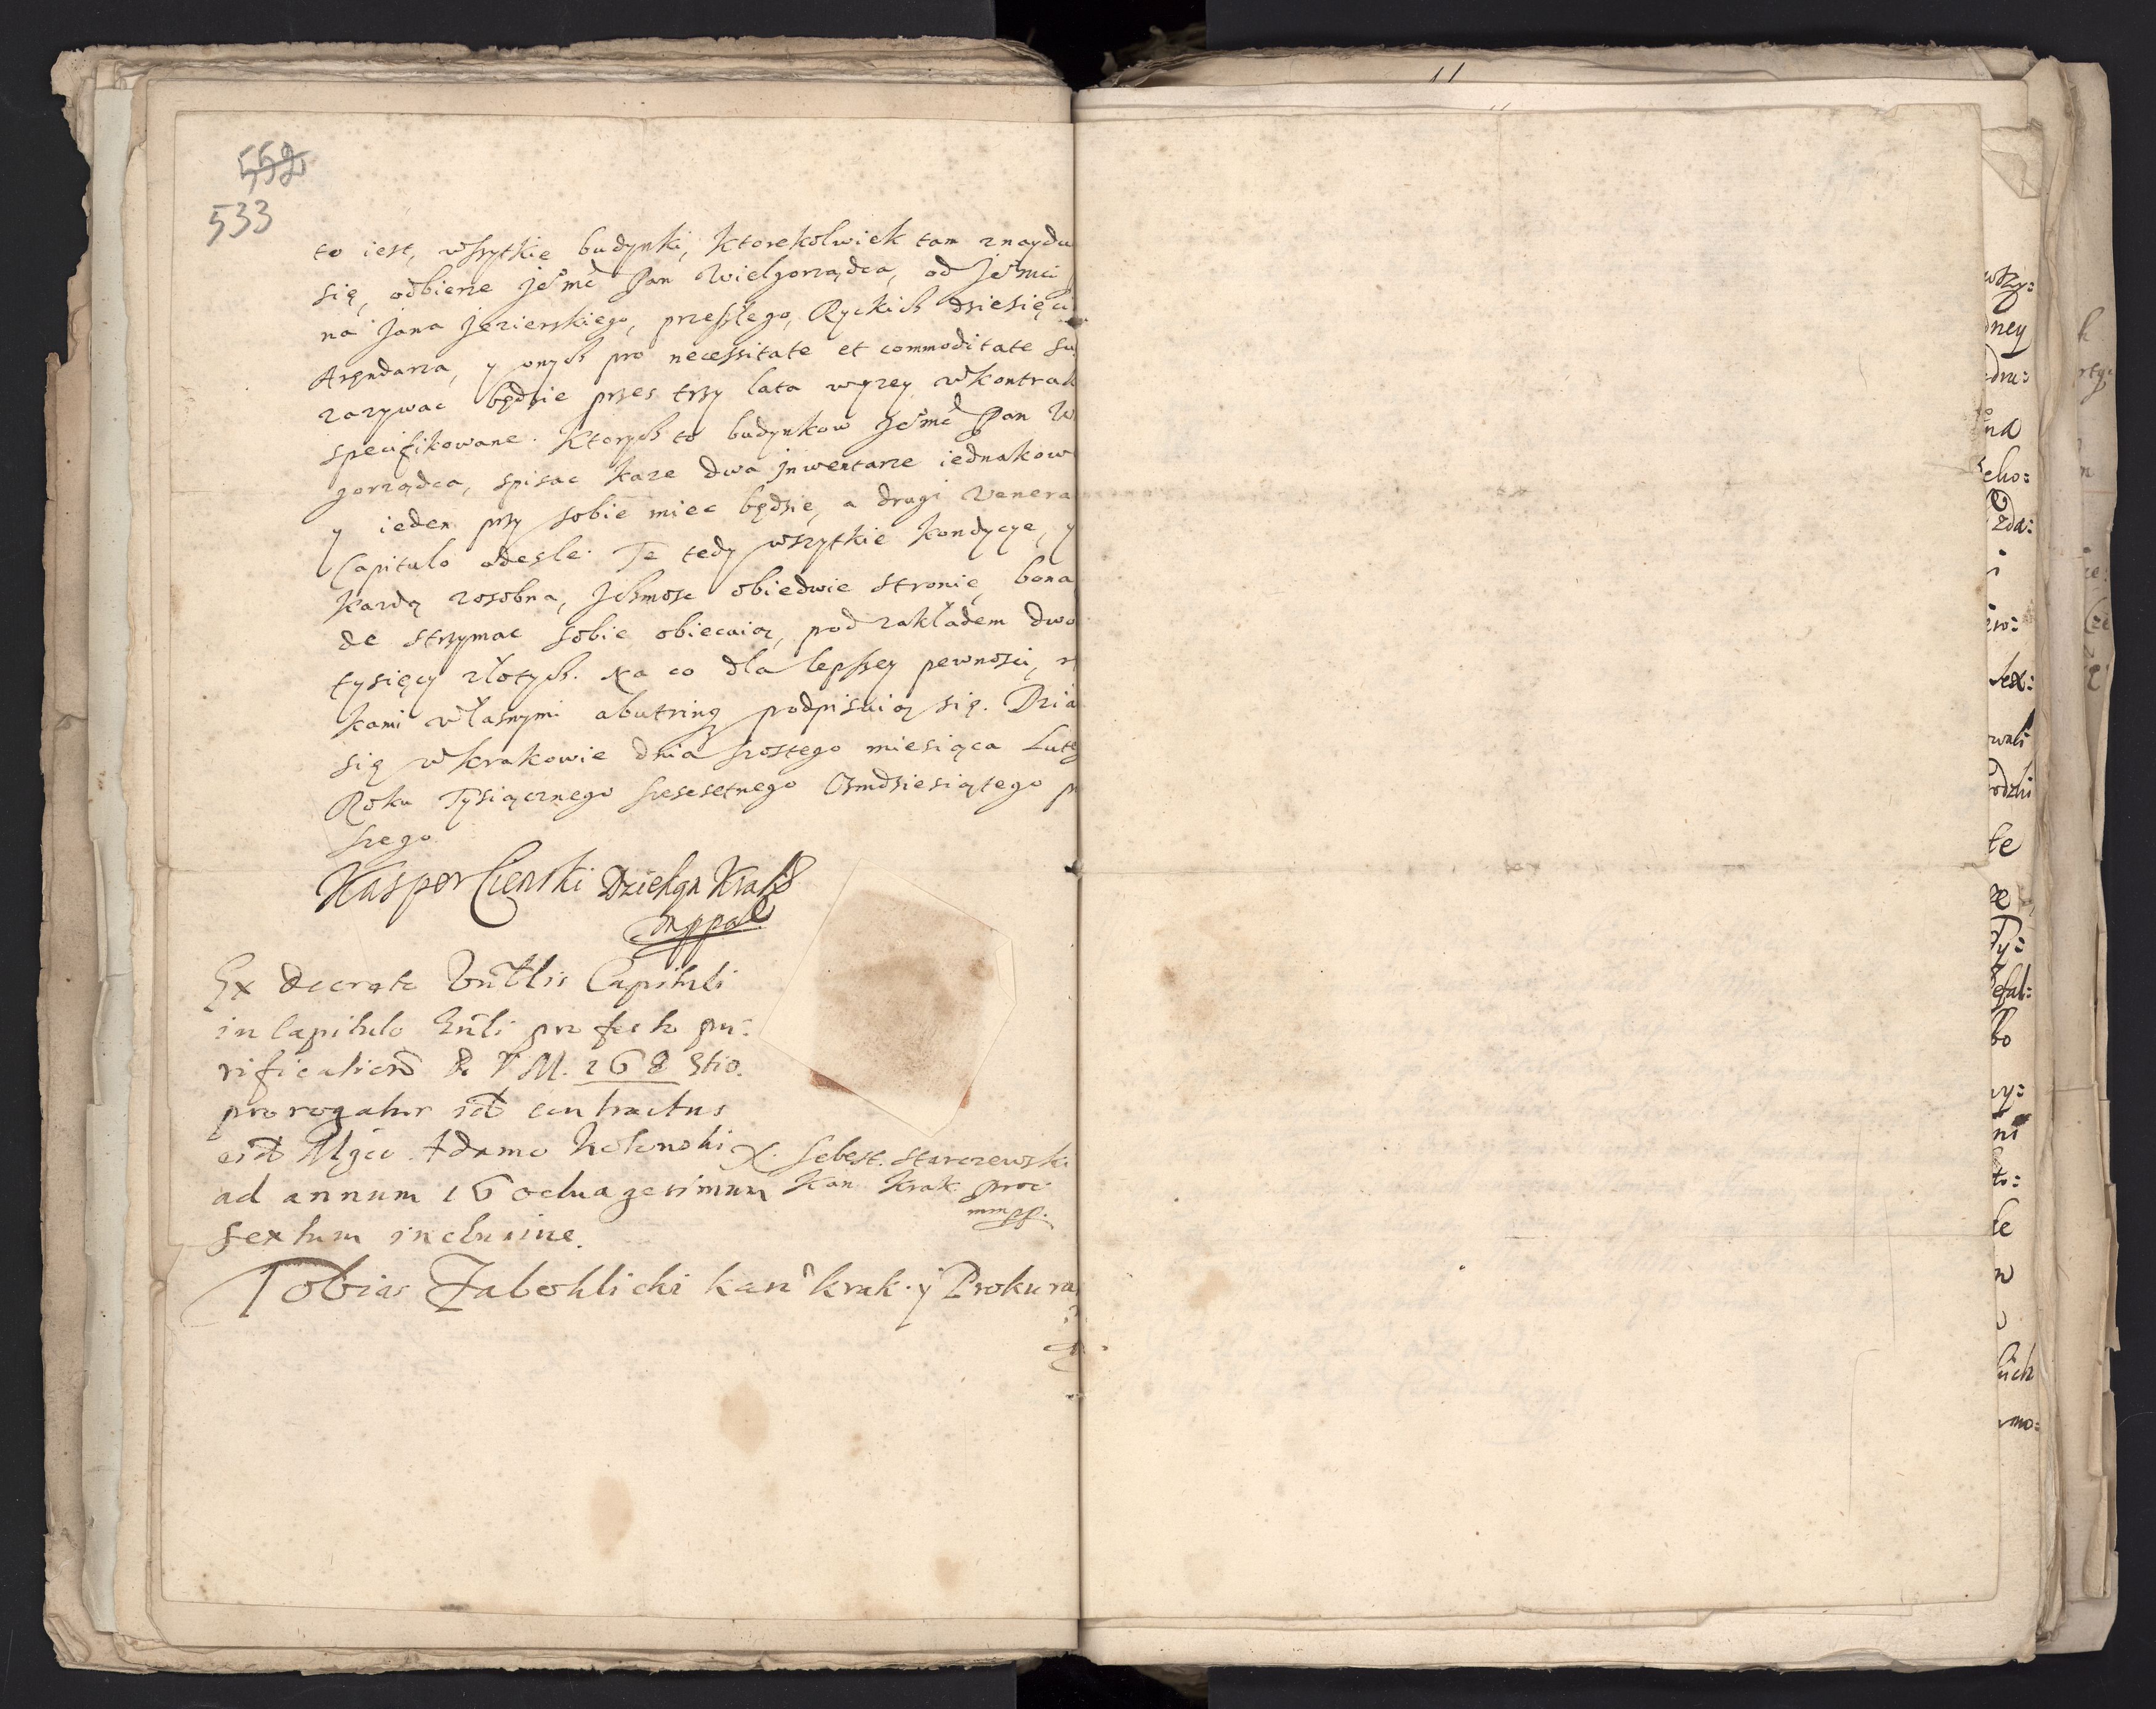 552
533
to iest, wszytkie budynki, ktorekolwiek tam znaydu
się, odbierze Jeḡmć Pan Wielgorządca, od Jeḡmci
na Jana Jezierskiego, przeszłego, Ryckich dziesięci
Arędarza, y onych pro necessitate et commoditate su
zazywac będzie przes trzy lata wyzey w kontrak
specifikowane. Ktorych to budynkow Jeḡmć Pan W
gorządca, spisac kaze dwa jnwentarze iednakow
y ieden przy sobie miec będzie, a drugi Venera
Capitulo odesle. Te tedy wszytkie kondycye, y
kazdą zosobna, Jchmosc obiedwie stronie, bona
de strzymac sobie obiecuią, pod zakładem dwo
tysięcy złotych. Na co dla lepszey pewnosci, r
kami własnymi abutring podpisuią się. Dzia
się w Krakowie dnia szostego miesiąca Lute
Roku Tysiącznego szescsetnego Osmdziesiątego p
szego
Kasper Cienski Dziekan Krak
mppa
Ex decreto Vnlis Capituli
in Capitulo Gnli pro festo pu:
rificationis B. V. M. 168 3tio.
prorogatur idt contractus
eidt Mgco Adamo Kotowski
ad annum 16 octuagesimum
sextum inclusiue.
X. Sebest. Starczewski
Kan Krak proc
mmpp.
Tobias Zaboklicki kan krak. y Prokura
11
wszy:
dney
dru:
na
cho:
zda:
i
zw:
lex:
owali
rodzki
te
ze
Ty:
efal:
bo
wy:
ni
to:
le
w
kich
mo: